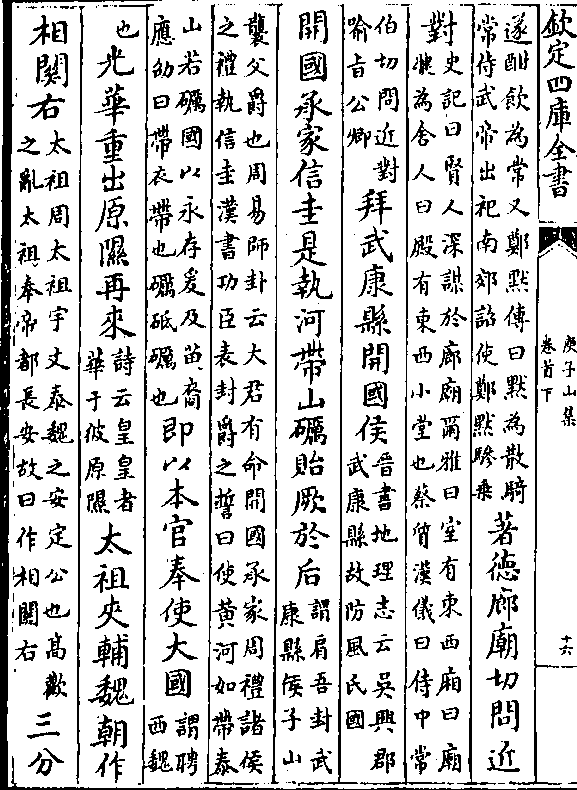 欽定四庫全書
庾子山集
卷首下
十六
遂酣飲為常又鄭黙傳曰黙為散騎
常侍武帝出祀南郊詔使鄭黙驂乘
著德廊廟切問近
對
史記曰賢人深謀於廊廟爾雅曰室有東西廂曰廟
䟽為舍人曰殿有東西小堂也蔡質漢儀曰侍中常
伯切問近對
喻旨公卿
拜武康縣開國侯
晉書地理志云吳興郡
武康縣故防風氏國
開國承家信圭是執河帶山礪貽厥於后
謂肩吾封武
康縣侯子山
襲父爵也周易師卦云大君有命開國承家周禮諸侯
之禮執信圭漢書功臣表封爵之誓曰使黄河如帶泰
山若礪國以永存爰及苗裔
應劭曰帶衣帶也礪砥礪也
即以本官奉使大國
謂聘
西魏
也
光華重出原隰再來
詩云皇皇者
華于彼原隰
太祖夾輔魏朝作
相關右
太祖周太祖宇文泰魏之安定公也高歡
之亂太祖奉帝都長安故曰作相關右
三分